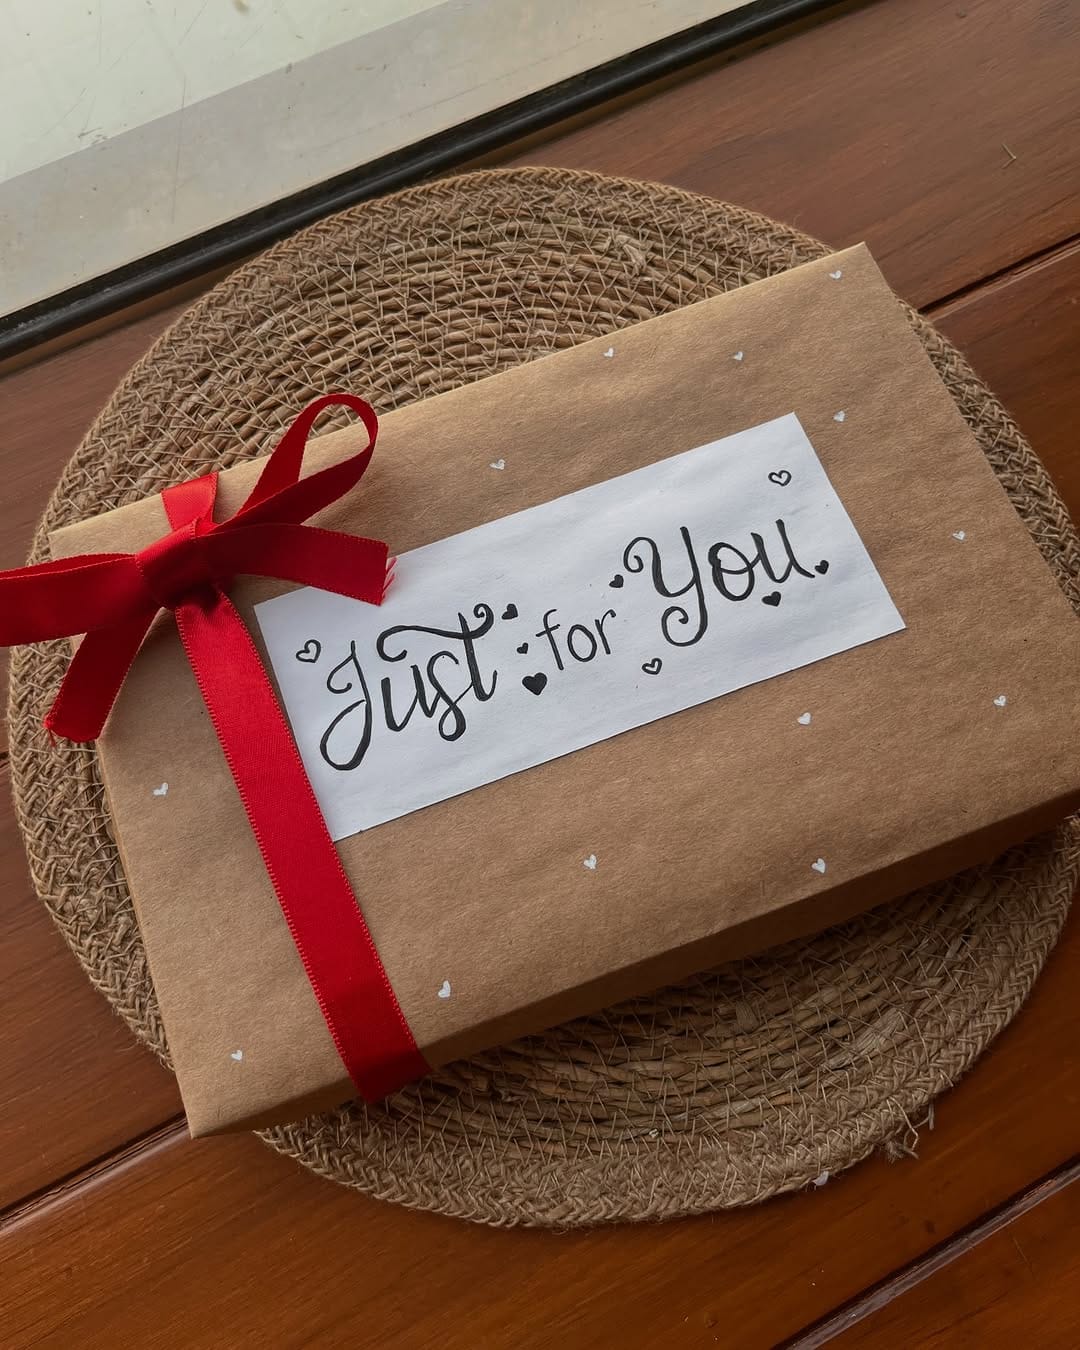 Just for You